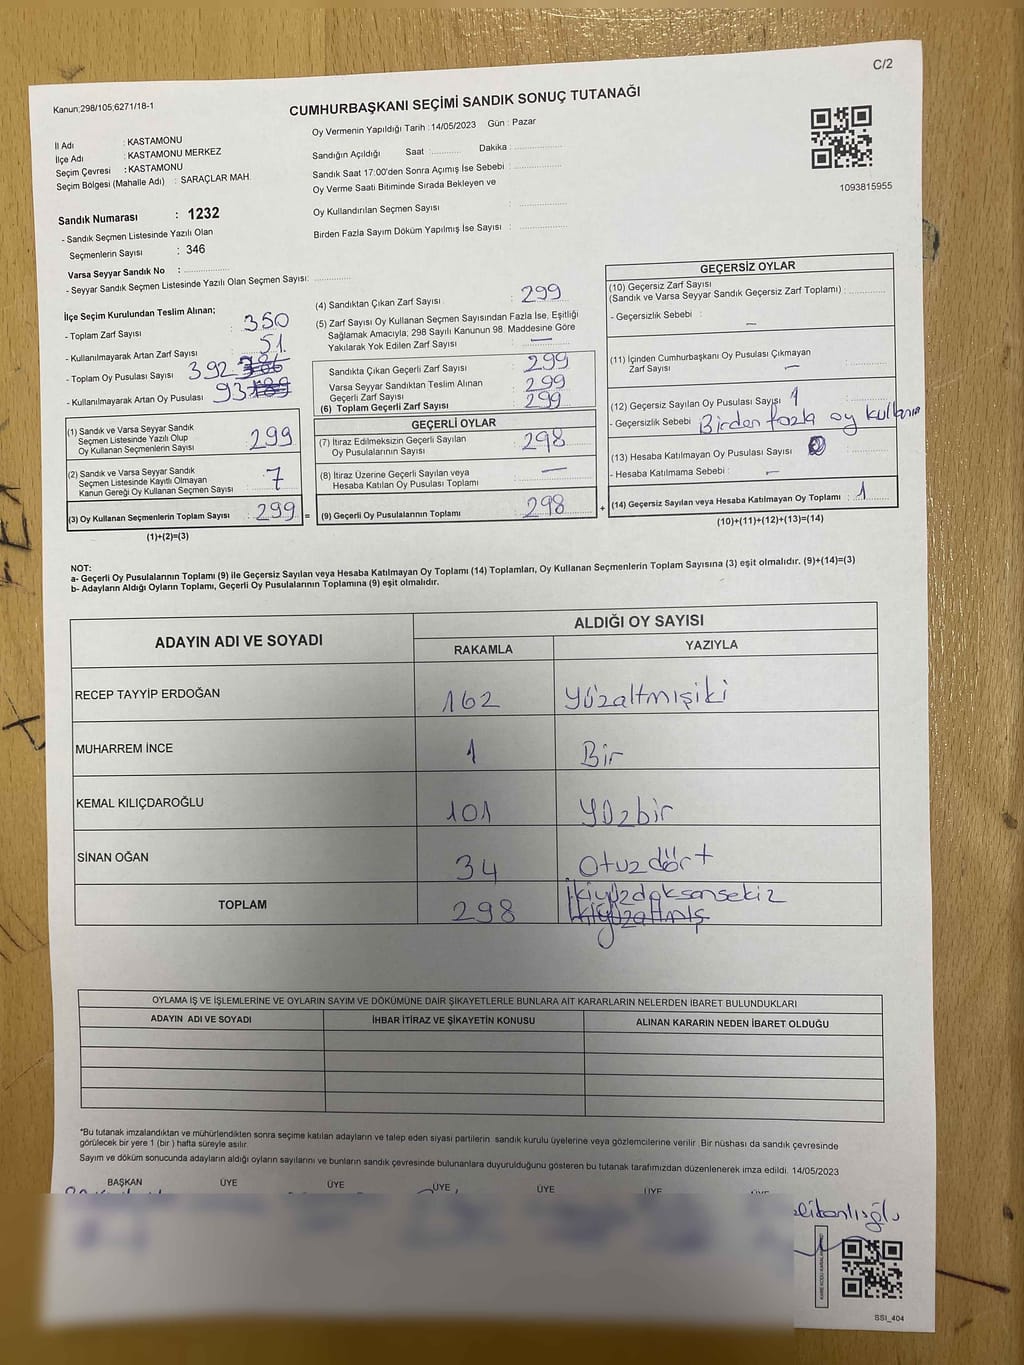 C/2
Kanun;298/105;6271/18-1
CUMHURBAŞKANI SEÇİMİ SANDIK SONUÇ TUTANAĞI
İl Adı : KASTAMONU
İlçe Adı : KASTAMONU MERKEZ
Seçim Çevresi : KASTAMONU
Seçim Bölgesi (Mahalle Adı) : SARAÇLAR MAH.
Oy Vermenin Yapıldığı Tarih : 14/05/2023 Gün : Pazar
Sandığın Açıldığı Saat : Dakika :
Sandık Saat 17:00'den Sonra Açımış İse Sebebi :
Oy Verme Saati Bitiminde Sırada Bekleyen ve
Oy Kullandırılan Seçmen Sayısı :
Birden Fazla Sayım Döküm Yapılmış İse Sayısı :
1093815955
Sandık Numarası : 1232
- Sandık Seçmen Listesinde Yazılı Olan
Seçmenlerin Sayısı : 346
Varsa Seyyar Sandık No :
- Seyyar Sandık Seçmen Listesinde Yazılı Olan Seçmen Sayısı:
İlçe Seçim Kurulundan Teslim Alınan;
- Toplam Zarf Sayısı : 350
- Kullanılmayarak Artan Zarf Sayısı : 51
- Toplam Oy Pusulası Sayısı : 392
- Kullanılmayarak Artan Oy Pusulası : 93
(1) Sandık ve Varsa Seyyar Sandık
Seçmen Listesinde Yazılı Olup
Oy Kullanan Seçmenlerin Sayısı : 299
(2) Sandık ve Varsa Seyyar Sandık
Seçmen Listesinde Kayıtlı Olmayan
Kanun Gereği Oy Kullanan Seçmen Sayısı : 7
(3) Oy Kullanan Seçmenlerin Toplam Sayısı : 299 =
(1)+(2)=(3)
(4) Sandıktan Çıkan Zarf Sayısı : 299
(5) Zarf Sayısı Oy Kullanan Seçmen Sayısından Fazla İse, Eşitliği
Sağlamak Amacıyla, 298 Sayılı Kanunun 98. Maddesine Göre
Yakılarak Yok Edilen Zarf Sayısı : —
Sandıkta Çıkan Geçerli Zarf Sayısı : 299
Varsa Seyyar Sandıktan Teslim Alınan
Geçerli Zarf Sayısı : 299
(6) Toplam Geçerli Zarf Sayısı : 299
GEÇERLİ OYLAR
(7) İtiraz Edilmeksizin Geçerli Sayılan
Oy Pusulalarının Sayısı : 298
(8) İtiraz Üzerine Geçerli Sayılan veya
Hesaba Katılan Oy Pusulası Toplamı : —
(9) Geçerli Oy Pusulalarının Toplamı : 298 +
GEÇERSİZ OYLAR
(10) Geçersiz Zarf Sayısı
(Sandık ve Varsa Seyyar Sandık Geçersiz Zarf Toplamı) :
- Geçersizlik Sebebi : —
(11) İçinden Cumhurbaşkanı Oy Pusulası Çıkmayan
Zarf Sayısı : —
(12) Geçersiz Sayılan Oy Pusulası Sayısı : 1
- Geçersizlik Sebebi : Birden fazla oy kullanım
(13) Hesaba Katılmayan Oy Pusulası Sayısı :
- Hesaba Katılmama Sebebi : —
(14) Geçersiz Sayılan veya Hesaba Katılmayan Oy Toplamı : 1
(10)+(11)+(12)+(13)=(14)
NOT:
a- Geçerli Oy Pusulalarının Toplamı (9) ile Geçersiz Sayılan veya Hesaba Katılmayan Oy Toplamı (14) Toplamları, Oy Kullanan Seçmenlerin Toplam Sayısına (3) eşit olmalıdır. (9)+(14)=(3)
b- Adayların Aldığı Oyların Toplamı, Geçerli Oy Pusulalarının Toplamına (9) eşit olmalıdır.
ADAYIN ADI VE SOYADI
ALDIĞI OY SAYISI
RAKAMLA YAZIYLA
RECEP TAYYİP ERDOĞAN 162 Yüzaltmışiki
MUHARREM İNCE 1 Bir
KEMAL KILIÇDAROĞLU 101 Yüzbir
SİNAN OĞAN 34 Otuzdört
TOPLAM 298 İkiyüzdoksansekiz
İkiyüzaltmış
OYLAMA İŞ VE İŞLEMLERİNE VE OYLARIN SAYIM VE DÖKÜMÜNE DAİR ŞİKAYETLERLE BUNLARA AİT KARARLARIN NELERDEN İBARET BULUNDUKLARI
ADAYIN ADI VE SOYADI İHBAR İTİRAZ VE ŞİKAYETİN KONUSU ALINAN KARARIN NEDEN İBARET OLDUĞU
*Bu tutanak imzalandıktan ve mühürlendikten sonra seçime katılan adayların ve talep eden siyasi partilerin sandık kurulu üyelerine veya gözlemcilerine verilir. Bir nüshası da sandık çevresinde
görülecek bir yere 1 (bir ) hafta süreyle asılır.
Sayım ve döküm sonucunda adayların aldığı oyların sayılarını ve bunların sandık çevresinde bulunanlara duyurulduğunu gösteren bu tutanak tarafımızdan düzenlenerek imza edildi. 14/05/2023
BAŞKAN ÜYE ÜYE ÜYE ÜYE ÜYE
SSI_404